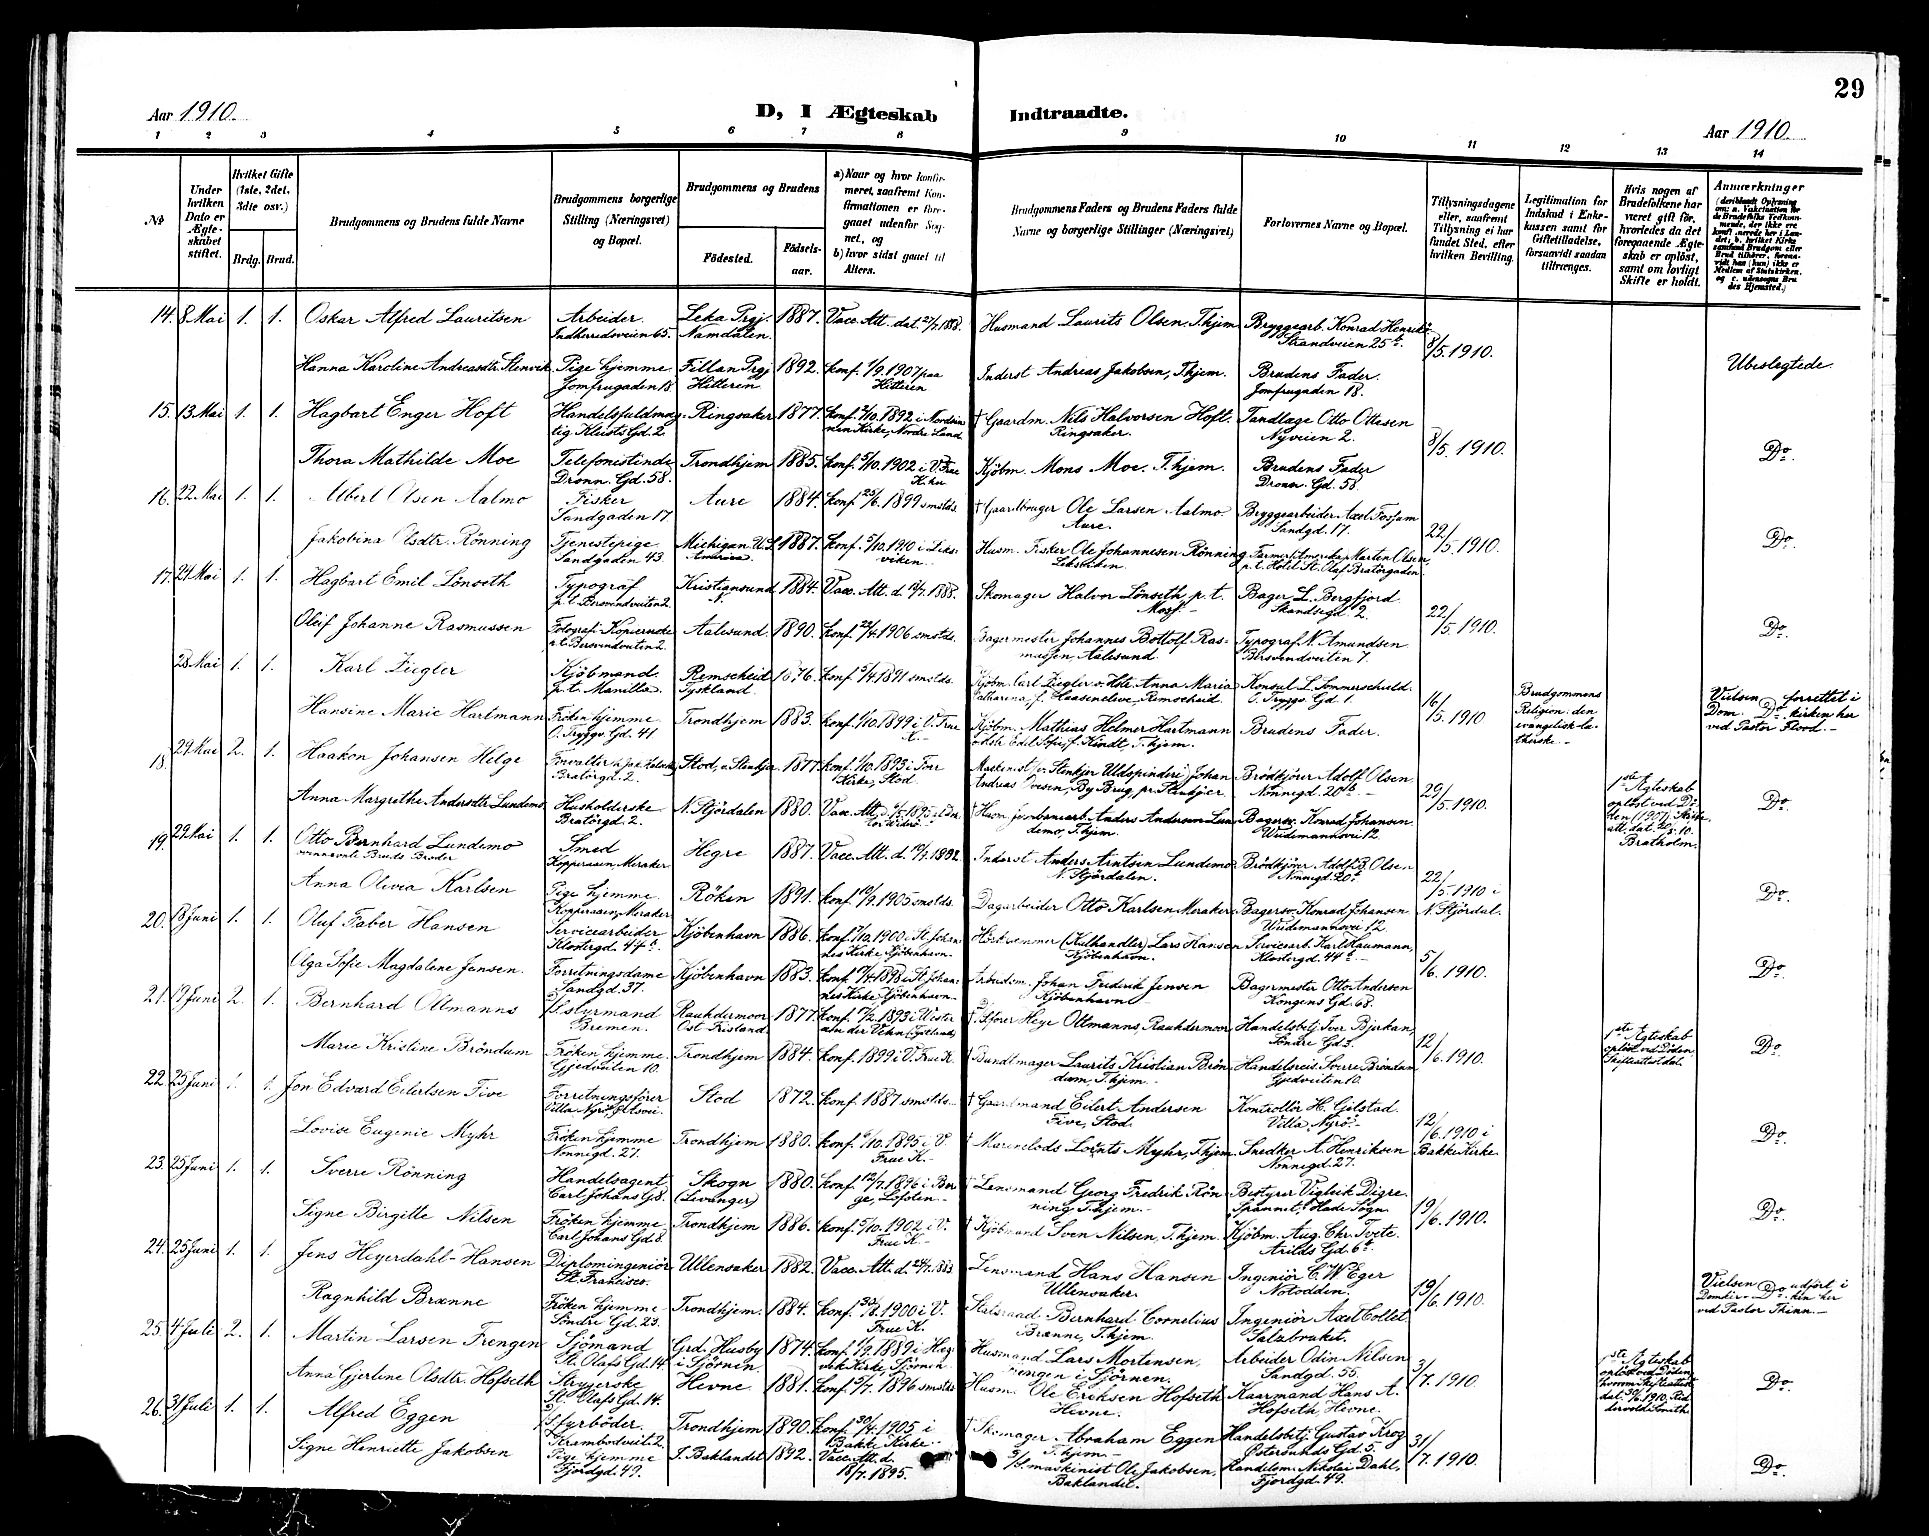 29
Aar 1910.
D, I Ægteskab Indtraadte.
Aar 1910.
1 2 3 4 5 6 7 8 9 10 11 12 13 14
No
Under hvilken Dato er Ægteskabet stiftet.
Hvilket Gifte (1ste, 2det, 3die osv.)
Brdg. Brud.
Brudgommens og Brudens fulde Navne
Brudgommens borgerlige Stilling (Næringsvei) og Bopæl.
Brudgommens og Brudens
Fødested.
Fødselsaar.
a) Naar og hvor konfirmeret, saafremt Konfirmationen er foregaaet udenfor Sognet, og
b) hvor sidst gaaet til Alters.
Brudgommens Faders og Brudens Faders fulde Navne og borgerlige Stillinger (Næringsvei)
Forlovernes Navne og Bopæl.
Tillysningsdagene eller, saafremt Tillysning ei har fundet Sted, efter hvilken Bevilling.
Legitimation for Indskud i Enkekassen samt for Giftetilladelse, forsaavidt saadan tiltrænges.
Hvis nogen af Brudefolkene har været gift før, hvorledes da det foregaaende Ægteskab er opløst, samt om lovligt Skifte er holdt.
Anmærkninger
14. 8 Mai 1. 1. Oskar Alfred Lauritsen Arbeider Leka Prgj. 1887. Vacc. Att. dat. Husmand Laurits Olsen, T.hjem Bryggearb. Konrad Henriks.
Indherredsveien 65. Namdalen. Strandveien 25 8/5. 1910.
Hanna Karoline Andreasdtr. Stenvik Pige hjemme Fillan Prgj 1892. Konf. 1/9. 1907 paa Inderst Andreas Jakobsen, T.hjem. Brudens Fader. Ubeslegtede.
Jomfrugaden 18 Hitteren Hitteren Jomfrugaden 18.
15. 13. Mai 1. 1. Hagbart Enger Hoft Handelsfuldmæg- Ringsaker 1877. Konf. 2/10. 1892 i Nordsin- † Gaardm. Nils Halvorsen Hoft. Tandlæge Otto Ottesen
tig Gd. 2. nen Kirke, Nordre Land Ringsaker. Nyveien 2. 8/5. 1910.
Thora Mathilde Moe Telefonistinde Trondhjem 1885. Konf. 5/10. 1902 i V. Frue Kjøbm. Mons Moe. T.hjem. Brudens Fader Do.
Dronn. Gd. 58. Kirke Dronn. Gd. 58
16. 22. Mai 1. 1. Albert Olsen Aalmo Fisker Aure 1884. Konf. 25/6. 1899 smstds. † Gaardbruger Ole Larsen Aalmo. Bryggearbeider Axel Fossum
Sandgaden 17. Aure. Sandgd. 17. 22/5. 1910.
Jakobina Olsdtr. Rönning Tjenestepige Michigan U.S. 1887. Konf. 5/10. 1910 i Leks- Husm. Fisker Ole Johannesen Rönning Farmer i Amerika Martin Olsen, Do.
Sandgaden 43. Amerika viken. Leksviken p.t. Hotel St. Olaf Bratörgaden
17. 21 Mai 1. 1. Hagbart Emil Lönseth Typograf Kristiansund 1884. Vacc. Att. d. 1888. Skomager Halvor Lönseth p.t. Bager L. Bergfjord.
p.t. Bersvendveiten 2 N. Skandsegd. 2. 22/5. 1910.
Oleif Johanne Rasmussen Aalesund. 1890. Konf. 22/4. 1906 smstds. Bagermester Johannes Bottolf Ras- Typograf N. Amundsen Do.
p.t. Bersvendveiten 2. mussen, Aalesund. Bersvendveiten 7.
28. Mai 1. 1. Karl Ziegler Kjöbmand Remscheid 1876. Konf. 5/4. 1891 smstds. Kjøbm. Carl Ziegler o. Hstr. Anna Maria Konsul L. Sommerschield.
p.t. Manilla. Tyskland. Catharina, f. Remscheid. O. Trygv. Gd. 1. 16/5. 1910 Brudgommens Religion: den evangelisk-lutherske. Vielsen forrettet i Domkirken her ved Pastor Flood. Do.
Hansine Marie Hartmann Fröken hjemme Trondhjem 1883. Konf. 1/10. 1899 i V. Frue K. Kjøbm. Mathias Helmer Hartmann Brudens Fader.
O. Trygv. Gd. 41 f. Kindt, T.hjem.
18. 29 Mai 2. 1. Haakon Johansen Helge Forvalter Stod, v. Stenkjer 1877 Konf. 1/10. 1893 i For Maskinist (v. Stenkjer Uldspinderi) Johan Brödkjörer Adolf Olsen
Bratörgd. 2. Kirke, Stod Andreas By Brug, pr. Stenkjer Nonnegd. 20 29/5. 1910. 1ste Ægteskab oplöst ved Döden (1907) Skifteatt. dat. 20/5. 10. Bratholm.
Anna Margrethe Andersdtr. Lundemo Husholderske N. Stjördalen 1880. Vacc. Att. † Husm. jernbanearb. Anders Andersen Lun- Bagersv. Konrad Johansen Do.
Bratörgd. 2. demo, T.hjem. 12
19. 29 Mai 1. 1. Otto Bernhard Lundemo Smed Hegre 1887. Vacc. Att. d. Inderst Anders Arntsen Lundemo. Brödkjörer Adolf B. Olsen
ovennævnte Bruds Broder Kopperaaen, Meraker N. Stjördalen. Nonnegd. 20 22/5. 1910 i N. Stjördal.
Anna Olivia Karlsen Pige hjemme Röken 1891. Konf. 1905 smstds. Dagarbeider Otto Karlsen Meraker. Bagersv. Konrad Johansen Do.
Kopperaaen, Meraker 12.
20. 18 Juni 1. 1. Oluf Faber Hansen Servicearbeider Kjöbenhavn 1886. Konf. 1/10. 1900 i St. Johan- (Kulhandler) Lars Hansen Servicearb. Karl Haumann,
Klostergd. 44 nes Kirke Kjöbenhavn. Kjöbenhavn. Klostergd. 44 5/6. 1910.
Olga Sofie Magdalene Jensen. Forretningsdame Kjöbenhavn 1883. Konf. 1898 i St. Johan- Arbeidsm. Johan Fredrik Jensen Bagermester Otto Andersen Do.
Sandgd. 37. nes Kirke Kjöbenhavn Kjöbenhavn Kongens Gd. 68.
21. 19 Juni 2. 1. Bernhard Oltmanns Styrmand Rauhdermoor 1877. Konf. 1893 i Wester † Heye Oltmanns, Rauhdermoor Handelsbetj. Iver Bjerkan
Bremen. Ost Frisland Söndre Gd. 3. 12/6. 1910. 1ste Ægteskab oplöst ved Döden.
Marie Kristine Bröndum Fröken hjemme Trondhjem 1884. Konf. 1899 i V. Frue K. † Bundtmager Laurits Kristian Brön- Handelsreis. Sverre Bröndum Do.
Gjedveiten 10. dum, T.hjem. Gjedveiten 10.
22. 25 Juni 1. 1. Jon Edvard Eilertsen Five Forretningsförer Stod 1872. Konf. 1887 smstds. † Gaardmand Eilert Andersen Kontrollör H. Gjelstad
Villa Nyrö, Five, Stod. Villa Nyrö. 12/6. 1910 i Bakke Kirke.
Lovise Eugenie Myhr Fröken hjemme Trondhjem 1880. Konf. 6/10. 1895 i V. Frue K. † Marinelods Lorents Myhr, T.hjem Snedker A. Henriksen Do.
Nonnegd. 27. Nonnegd. 27.
23. 25 Juni 1. 1. Sverre Rönning Handelsagent Skogn 1880. Konf. 12/7. 1896 i Bor- † Lensmand Georg Fredrik Rön- Bestyrer Vigleik Digre.
Carl Johans G. 8. (Levanger) ge, Lofoten ning T.hjem. Lade Sogn 19/6. 1910.
Signe Birgitte Nilsen Fröken hjemme Trondhjem 1886. Konf. 5/10. 1902 i V. Frue K. † Kjöbmand Sven Nilsen, T.hjem. Kjöbm. Aug. Chr. Tvete. Do.
Carl Johans Gd. 8. Arilds Gd. 6
24. 25 Juni 1. 1. Jens Heyerdahl-Hansen Diplomingeniör Ullensaker 1882. Vacc. Att. d. Lensmand Hans Hansen Ingeniör C. W. Eger
St. Francisco. Ullensaker. Notodden. 19/6. 1910. Vielsen udfört i Domkirken her ved Pastor Thinn. Do.
Ragnhild Brænne Fröken hjemme Trondhjem. 1884. Konf. 30/8. 1900 i V. Frue K. Statsraad Bernhard Cornelius Ingeniör Axel Collet
Söndre Gd. 23. Brænne, T.hjem Salzbruket.
25. 4 Juli 2. 1. Martin Larsen Frengen Sjömand Grd. Husby 1874. Konf. 1/9. 1889 i Hæg- Husmand Lars Mortensen, Arbeider Odin Nilsen
St. Olafs Gd. 14. i Stjörnen. vik Kirke, Stjörnen Frengen i Stjörnen. Sandgd. 55. 3/7. 1910. 1ste Ægteskab oplöst ved Döden
Anna Gjertine Olsdtr. Hofseth Strygerske Hevne 1881. Konf. 5/7. 1896 smstds Husm. Ole Eriksen Hofseth Kaarmand Hans A. Do.
St. Olafs Gd. 14. Hevne. Hofseth Hevne.
26. 31 Juli 1. 1. Alfred Eggen Fyrböder. Trondhjem 1890. Konf. 30/4. 1905 i † Skomager Abraham Eggen Handelsbetj. Gustav Krog
Krambodveit. 2. Bakke Kirke. T.hjem. Gd. 5. 31/7. 1910.
Signe Henriette Jakobsen Pige hjemme I. Baklandet 1892. Vacc. Att. d. maskinist Ole Jakobsen, Handelsm. Nikolai Dahl, Do.
Fjordgd. 49. 18/7. 1895. Baklandet. Fjordgd. 49.